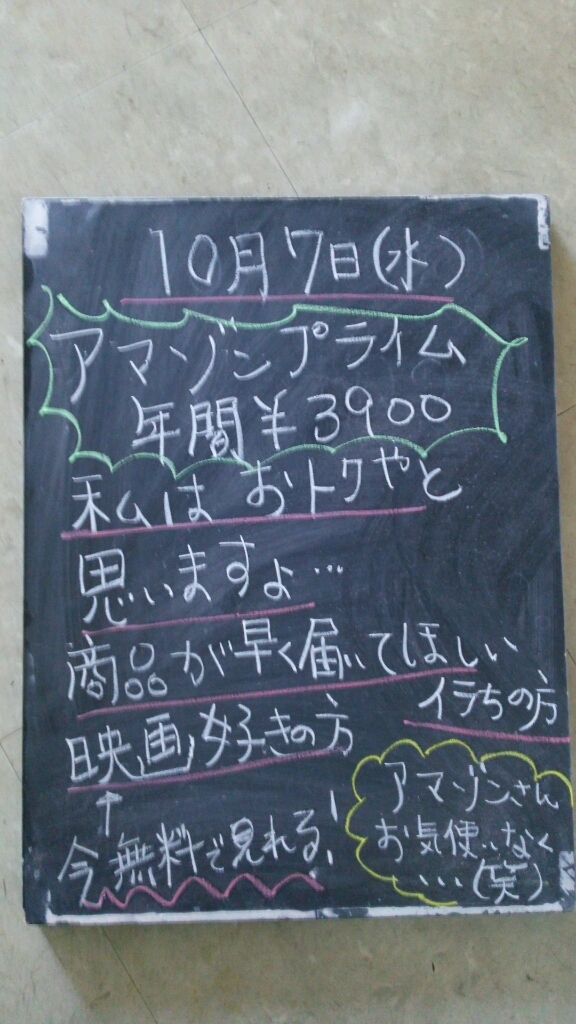 10月7日(水)
アマゾンプライム
年間¥3900
私はおトクやと
思いますよ…
商品が早く届いてほしい
イラちの方
映画好きの方
↑
今無料で見れる!
アマゾンさん
お気使いなく
...(笑)